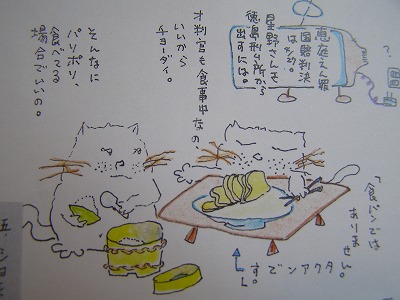 恵庭えん罪
国賠判決
は3/27。
星野さんを
徳島刑ム所から
出すには。
才判官も食事中なの
いいから
チョーダイ。
そんなに
パリポリ、
食べてる
場合でいいの。
「食パンでは
ありません。
タクアンで
す。」